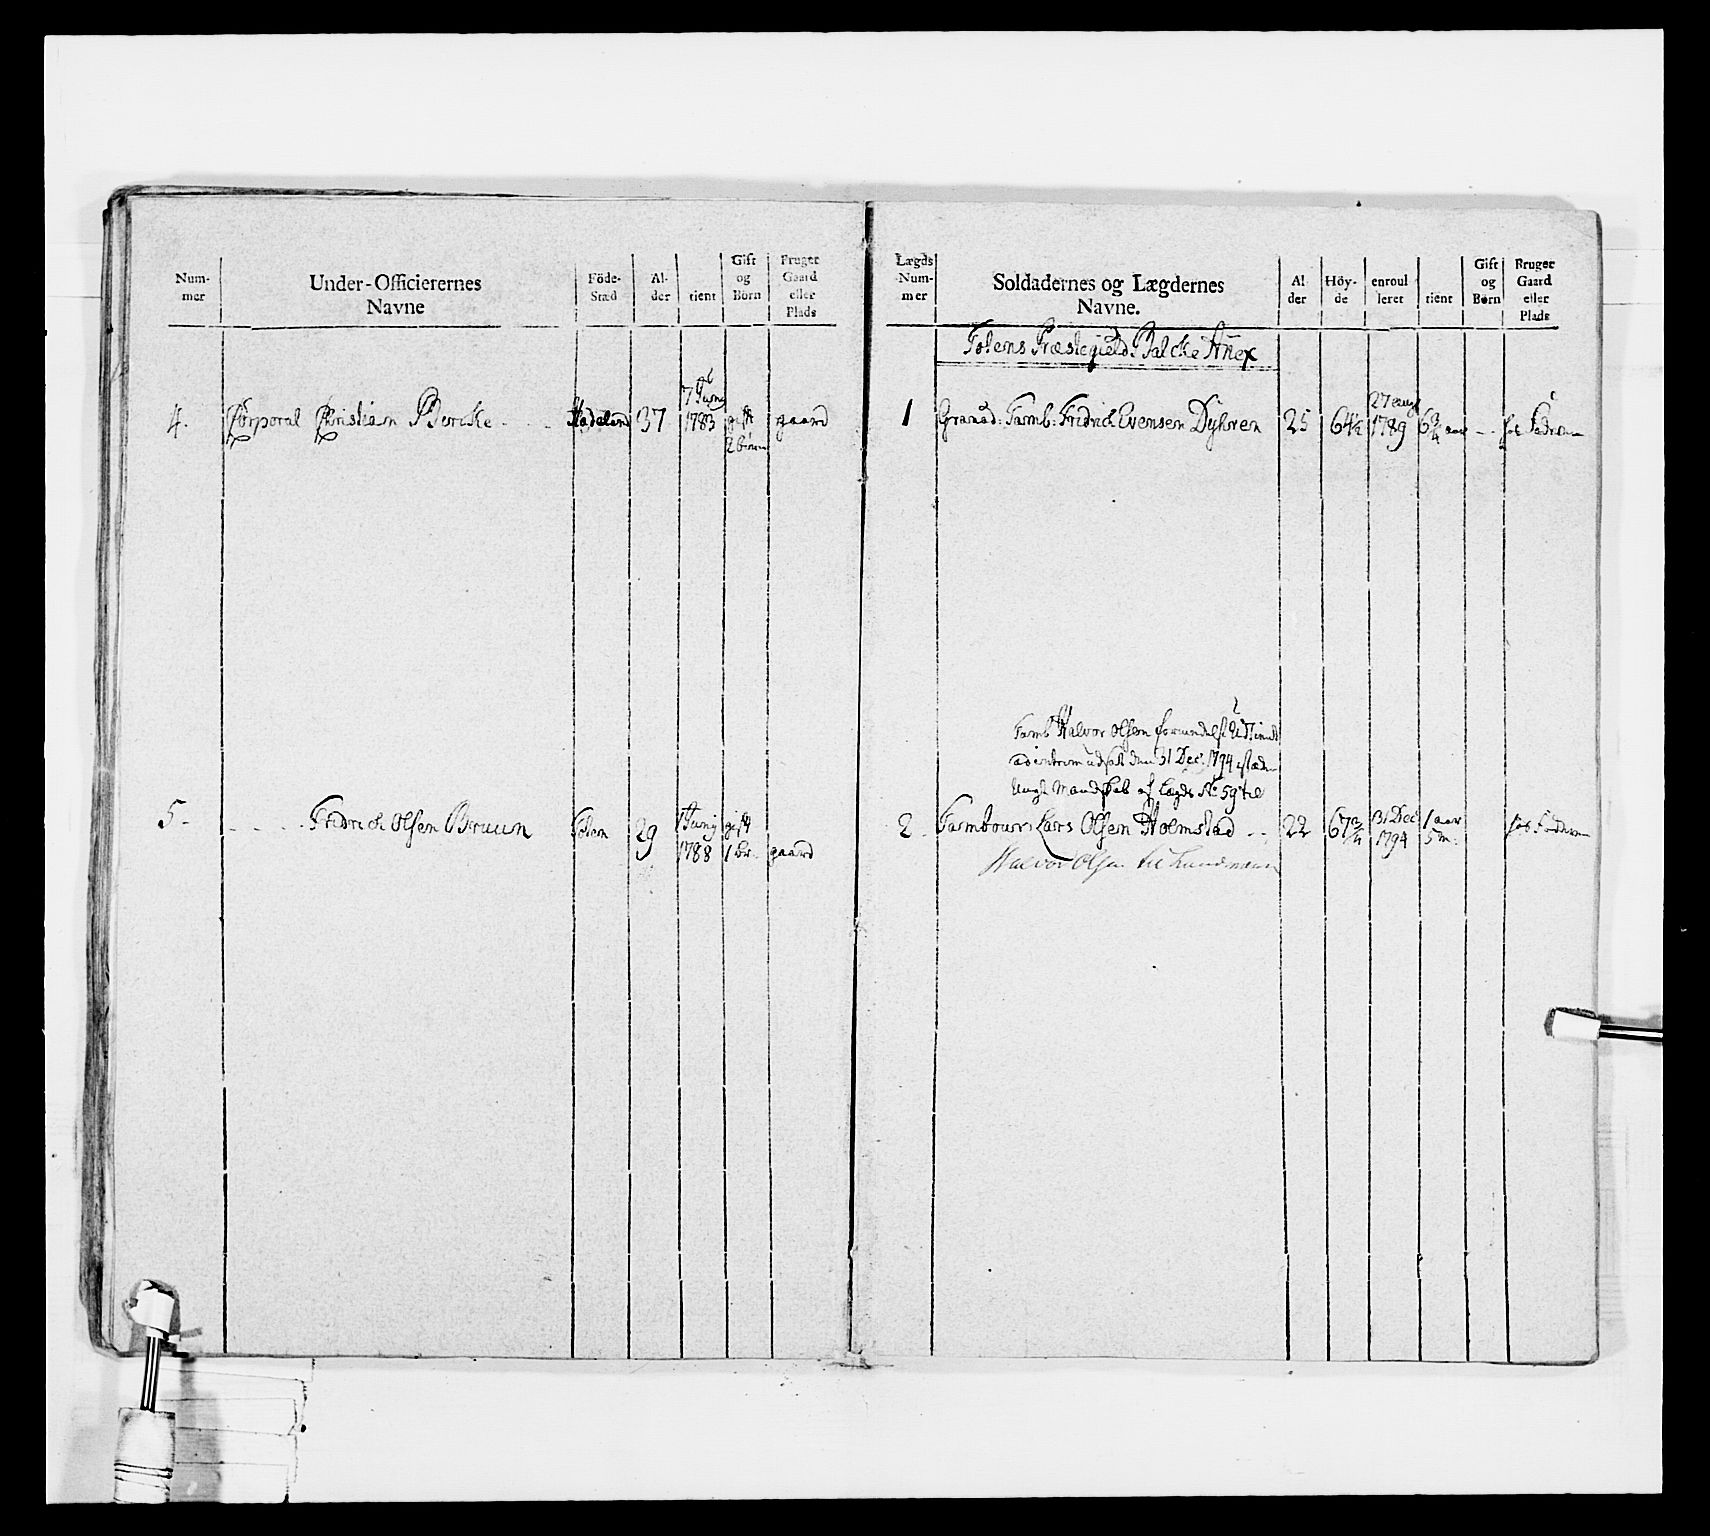 Num-
mer
Under-Officierernes
Navne
Föde-
Stæd
Al-
der
tient
Gift
og
Börn
Bruger
Gaard
eller
Plads
4. Corporal Christian Bercke - - - Hadeland 37 7 Juny 1783 gift 2 börn gaard
5. - - - - Fridrich Olsen Bruun Toten 29 1 Juny 1788 gift 1 br. gaard
Lægds
Num-
mer
Soldadernes og Lægdernes
Navne.
Al
der
Höy-
de
enroul
leret
tient
Gift
og
Børn
Bruger
Gaard
eller
Plads
Totens Præstegield: Balcke Anex
1 Granad: Tamb: Fridrich Evensen Dyhren 25 64½ 27 aug 1789 6¾ aar - -
Tamb Halvor Olsen
udsat den 31 Dec: 1794
Ungt Mandskab af Lægds No 59 til
2. Tambour Lars Olsen Holmstad - - 22 67¾ 31 Dec 1794 1 aar 5 m:
Halvor Olsen til Landværn